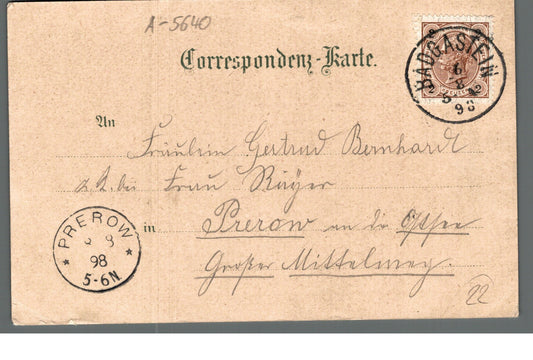 A-5640
Correspondenz-Karte.
BADGASTEIN
6
8
98
An
Fräulein Gertrud Bernhardt
z. Z. bei Frau Käyer
in Prerow an die Ostsee
Großer Mittelweg.
PREROW
8
98
5-6N.
22